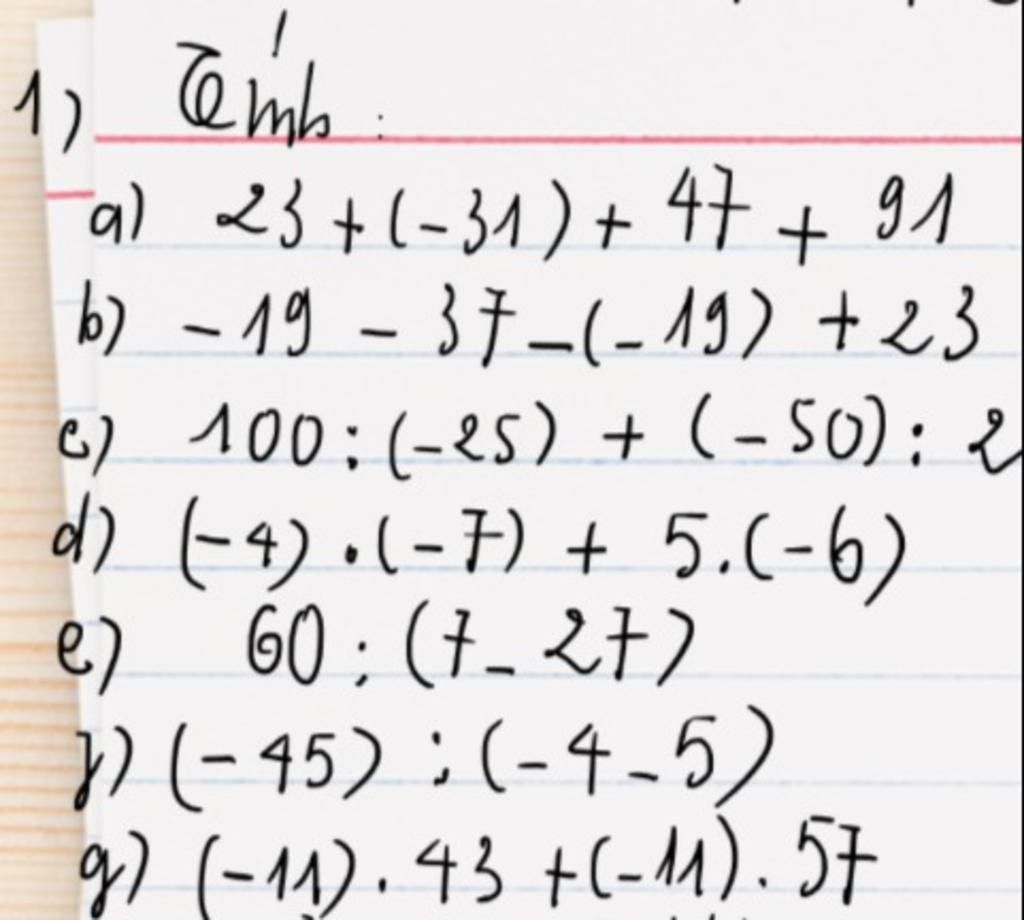 1) Tính :
a) 23 + (-31) + 47 + 91
b) - 19 - 37 - (- 19) + 23
c) 100 : (-25) + (- 50) : 2
d) (- 4) . (- 7) + 5.(- 6)
e) 60 : (7 - 27)
f) (- 45) : (- 4 - 5)
g) (-11) . 43 + (-11) . 57